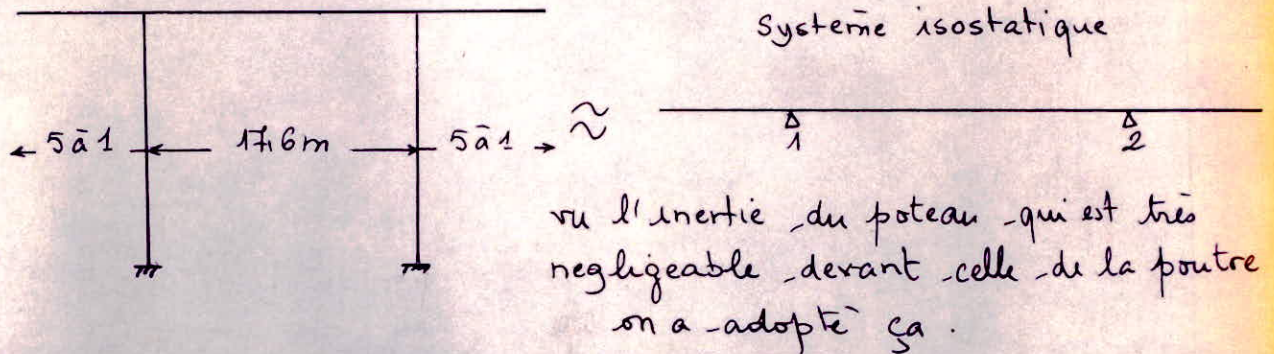 Système isostatique
5 à 1 17,6m 5 à 1 ≈
1 2
vu l'inertie du poteau qui est très
negligeable devant celle de la poutre
on a adopté ça.